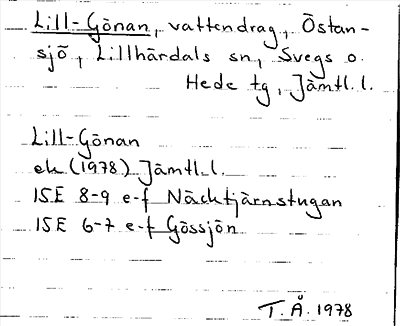 Lill-Gönan, vattendrag, Östan-
sjö, Lillhärdals sn, Svegs o.
Hede tg, Jämtl.l.
Lill-Gönan
ek (1978) Jämtl.l.
15E 8-9 e-f Näcktjärnstugan
15E 6-7 e-f Gössjön
T.Å. 1978